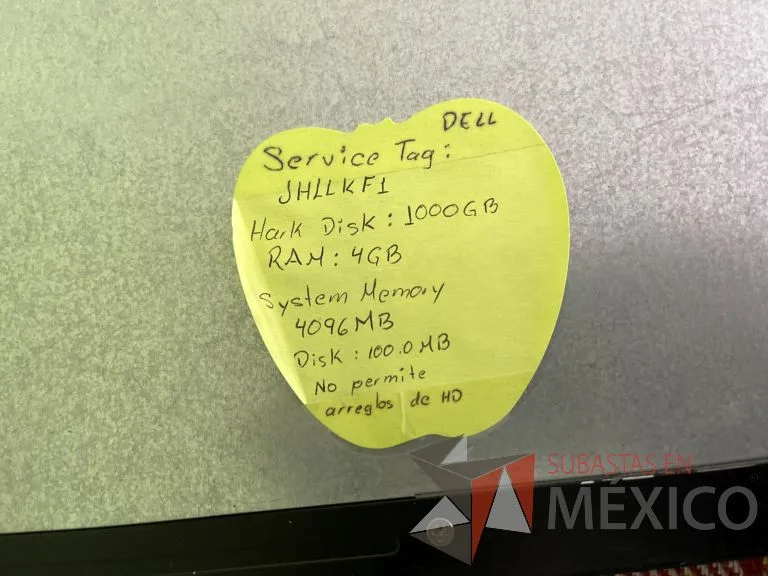 DELL
Service Tag:
JH1LKF1
Hark Disk: 1000GB
RAM: 4GB
System Memory
4096MB
Disk: 100.0 MB
No permite
arreglos de HD
SUBASTAS EN
MÉXICO